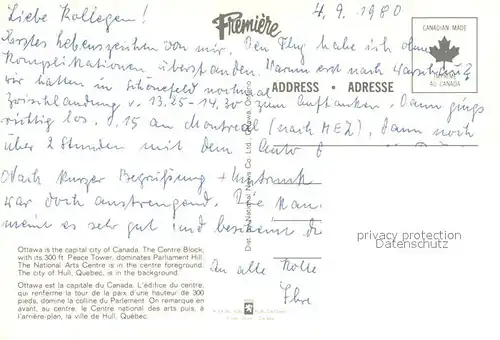 Liebe Kollegen!
4.9.1980
Première
CANADIAN MADE
IMPRIMÉ
AU CANADA
Erstes Lebenszeichen von mir. Den Flug habe ich ohne
Komplikationen überstanden. Warum erst nach Warschau?
wir hatten in Schönefeld nochmal
ADDRESS • ADRESSE
Zwischlandung v. 13.25-14.30 zum Auftanken. Dann gings
richtig los. 15 an Montreal (nach MEZ). Dann noch
über 2 Stunden mit dem Auto
Nach kurzer Begrüßung + Umtrunk
war doch anstrengend. Die
meint es sehr gut und
privacy protection
Ottawa is the capital city of Canada. The Centre Block,
with its 300 ft. Peace Tower, dominates Parliament Hill.
The National Arts Centre is in the centre foreground.
The city of Hull, Quebec, is in the background.
An alle
Ottawa est la capitale du Canada. L'édifice du centre,
qui renferme la tour de la paix d'une hauteur de 300
pieds, domine la colline du Parlement. On remarque en
avant, au centre, le Centre national des arts puis, à
l'arrière-plan, la ville de Hull, Québec.
Ihre
Dist. by National News Co. Ltd., Ottawa, Ontario